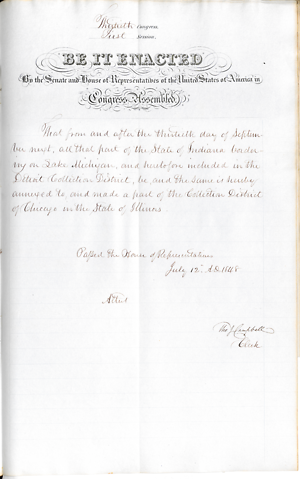 Thirtieth Congress
First Session
BE IT ENACTED
By the Senate and House of Representatives of the United States of America in
Congress Assembled,
That from and after the thirtieth day of Septem-
ber next, all that part of the State of Indiana border-
ing on Lake Michigan, and heretofore included in the
Detroit Collection District, be, and the same is hereby
annexed to, and made a part of the Collection District
of Chicago in the State of Illinois
Passed the House of Representatives
July 12th A D 1848
Attest
Tho J Campbell
Clerk